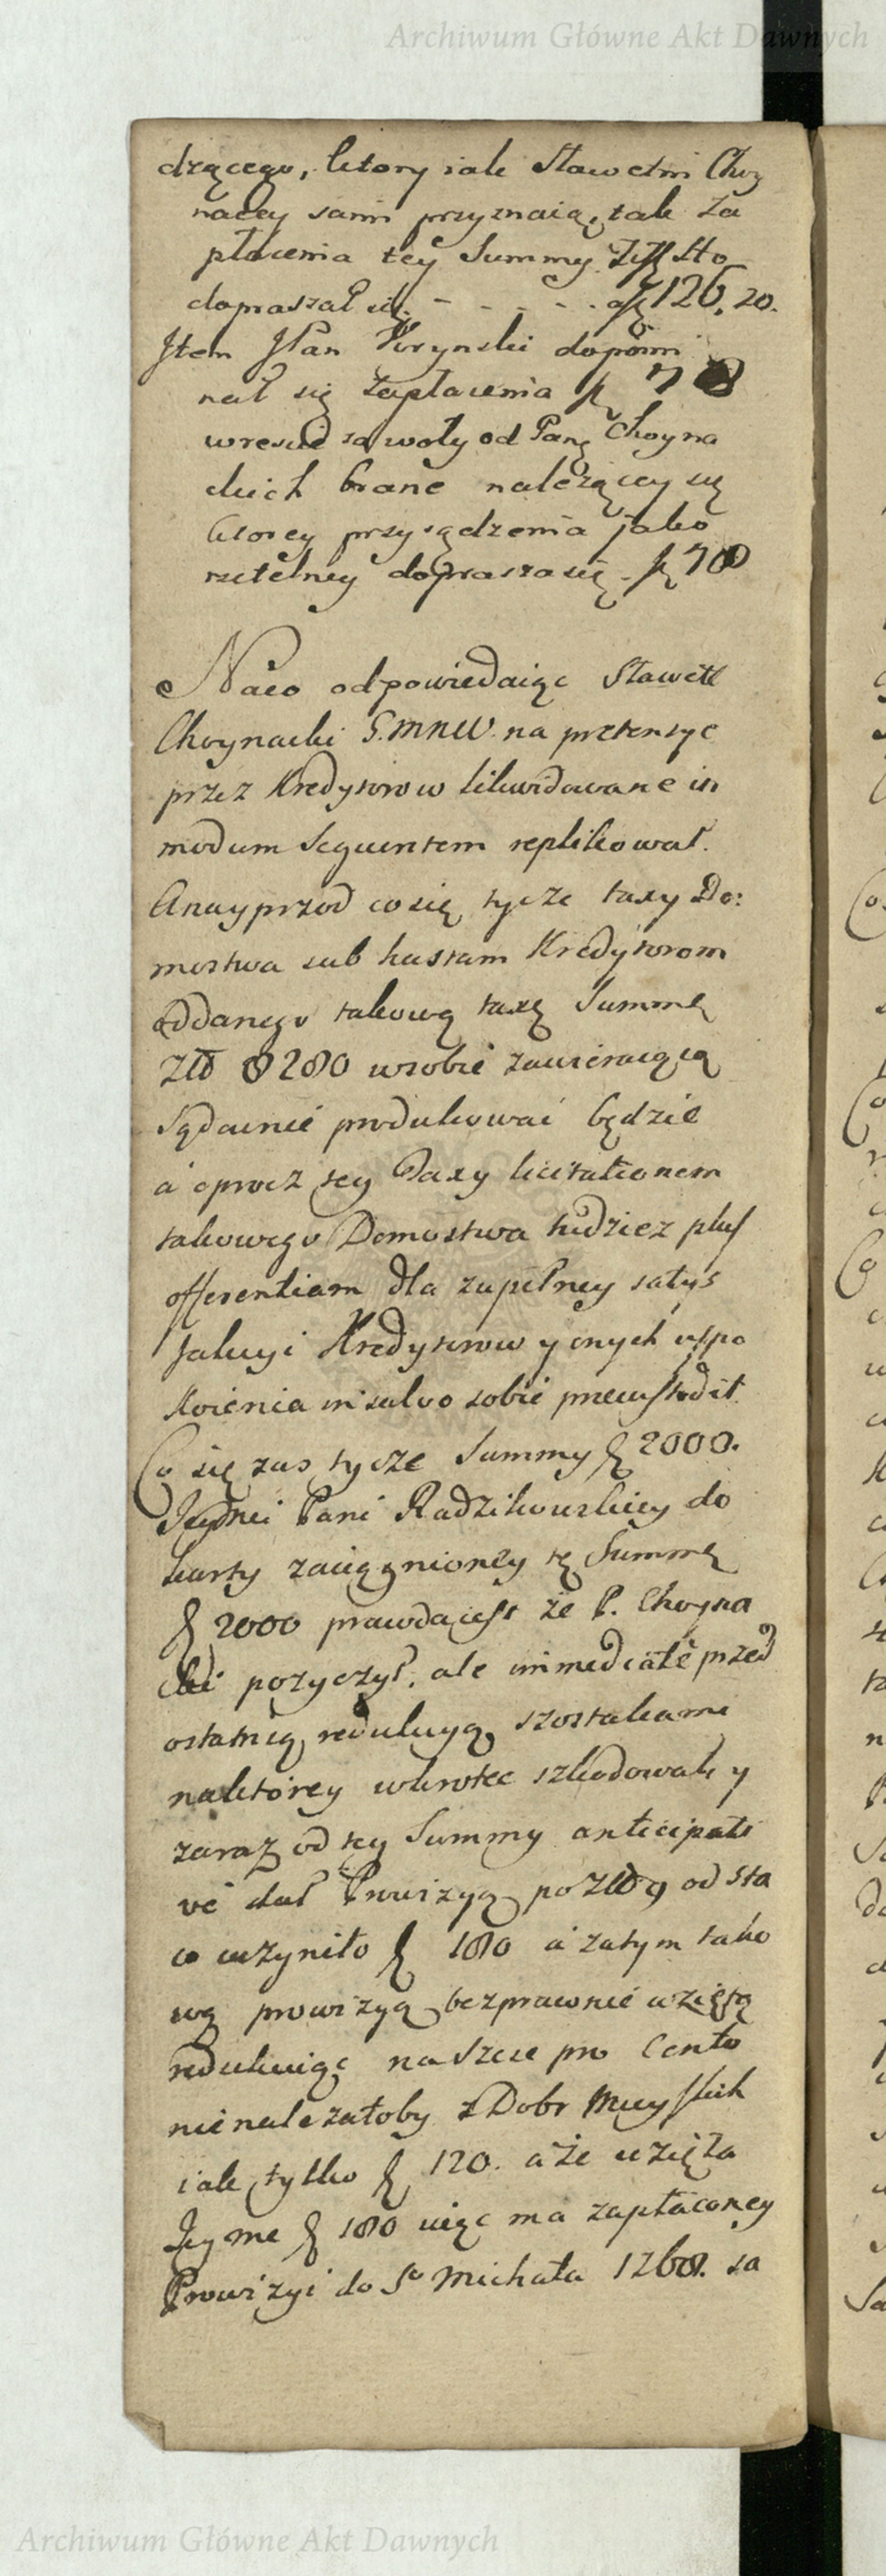 Archiwum Główne Akt Dawnych
dzącego, ktory iak Sławetni Choy
naccy sami przyznaią, tak za
płacenia tey Summy Sto
dopraszał się - - - - 126, 20.
Item JPan Kurynski dopomi
nał się zapłacenia
wreście za woły od Pana Choyna
ckich brane należącey się
ktorey przysądzenia jako
rzetelney doprasza się.
Naco odpowiedaiąc Sławetl
Choynacki S.MNW. na pretensye
przez Kredytorow likwidowane in
modum sequentem replikował.
A nayprzod co się tycze taxy Do:
mostwa sub hastam Kredytorom
oddanego takową taxę Summę
Złł 8280 w sobie zawieraiącą
Sądownie produkować będzie
a oprocz tey Taxy licitationem
takowego Domostwa tudziez plus
offerentiam dla zupełney satys
fakcyi Kredytorow y onych uspo
koienia in salvo sobie
Co się zas tycze Summy 2000.
Pani Radzikowskiey do
karty zaciągnioney tę Summę
2000 prawda iest że P. Choyna
cki pozyczył, ale immediate przed
ostatnią redukcyą szostakami
naktorey wkrotce szkodował y
zaraz od tey Summy anticipati
ve dał Prowizyą po Złł 9 od sta
co uczyniło 180 a zatym tako
wą prowizyą bezprawnie wziętą
redukuiąc na szesc pro Cento
nie nalezałoby z Dobr Mieyskich
iak tylko 120. a że wzięła
Jeyme 180 więc ma zapłaconey
Prowizyi do So Michała 1768. za
Archiwum Główne Akt Dawnych